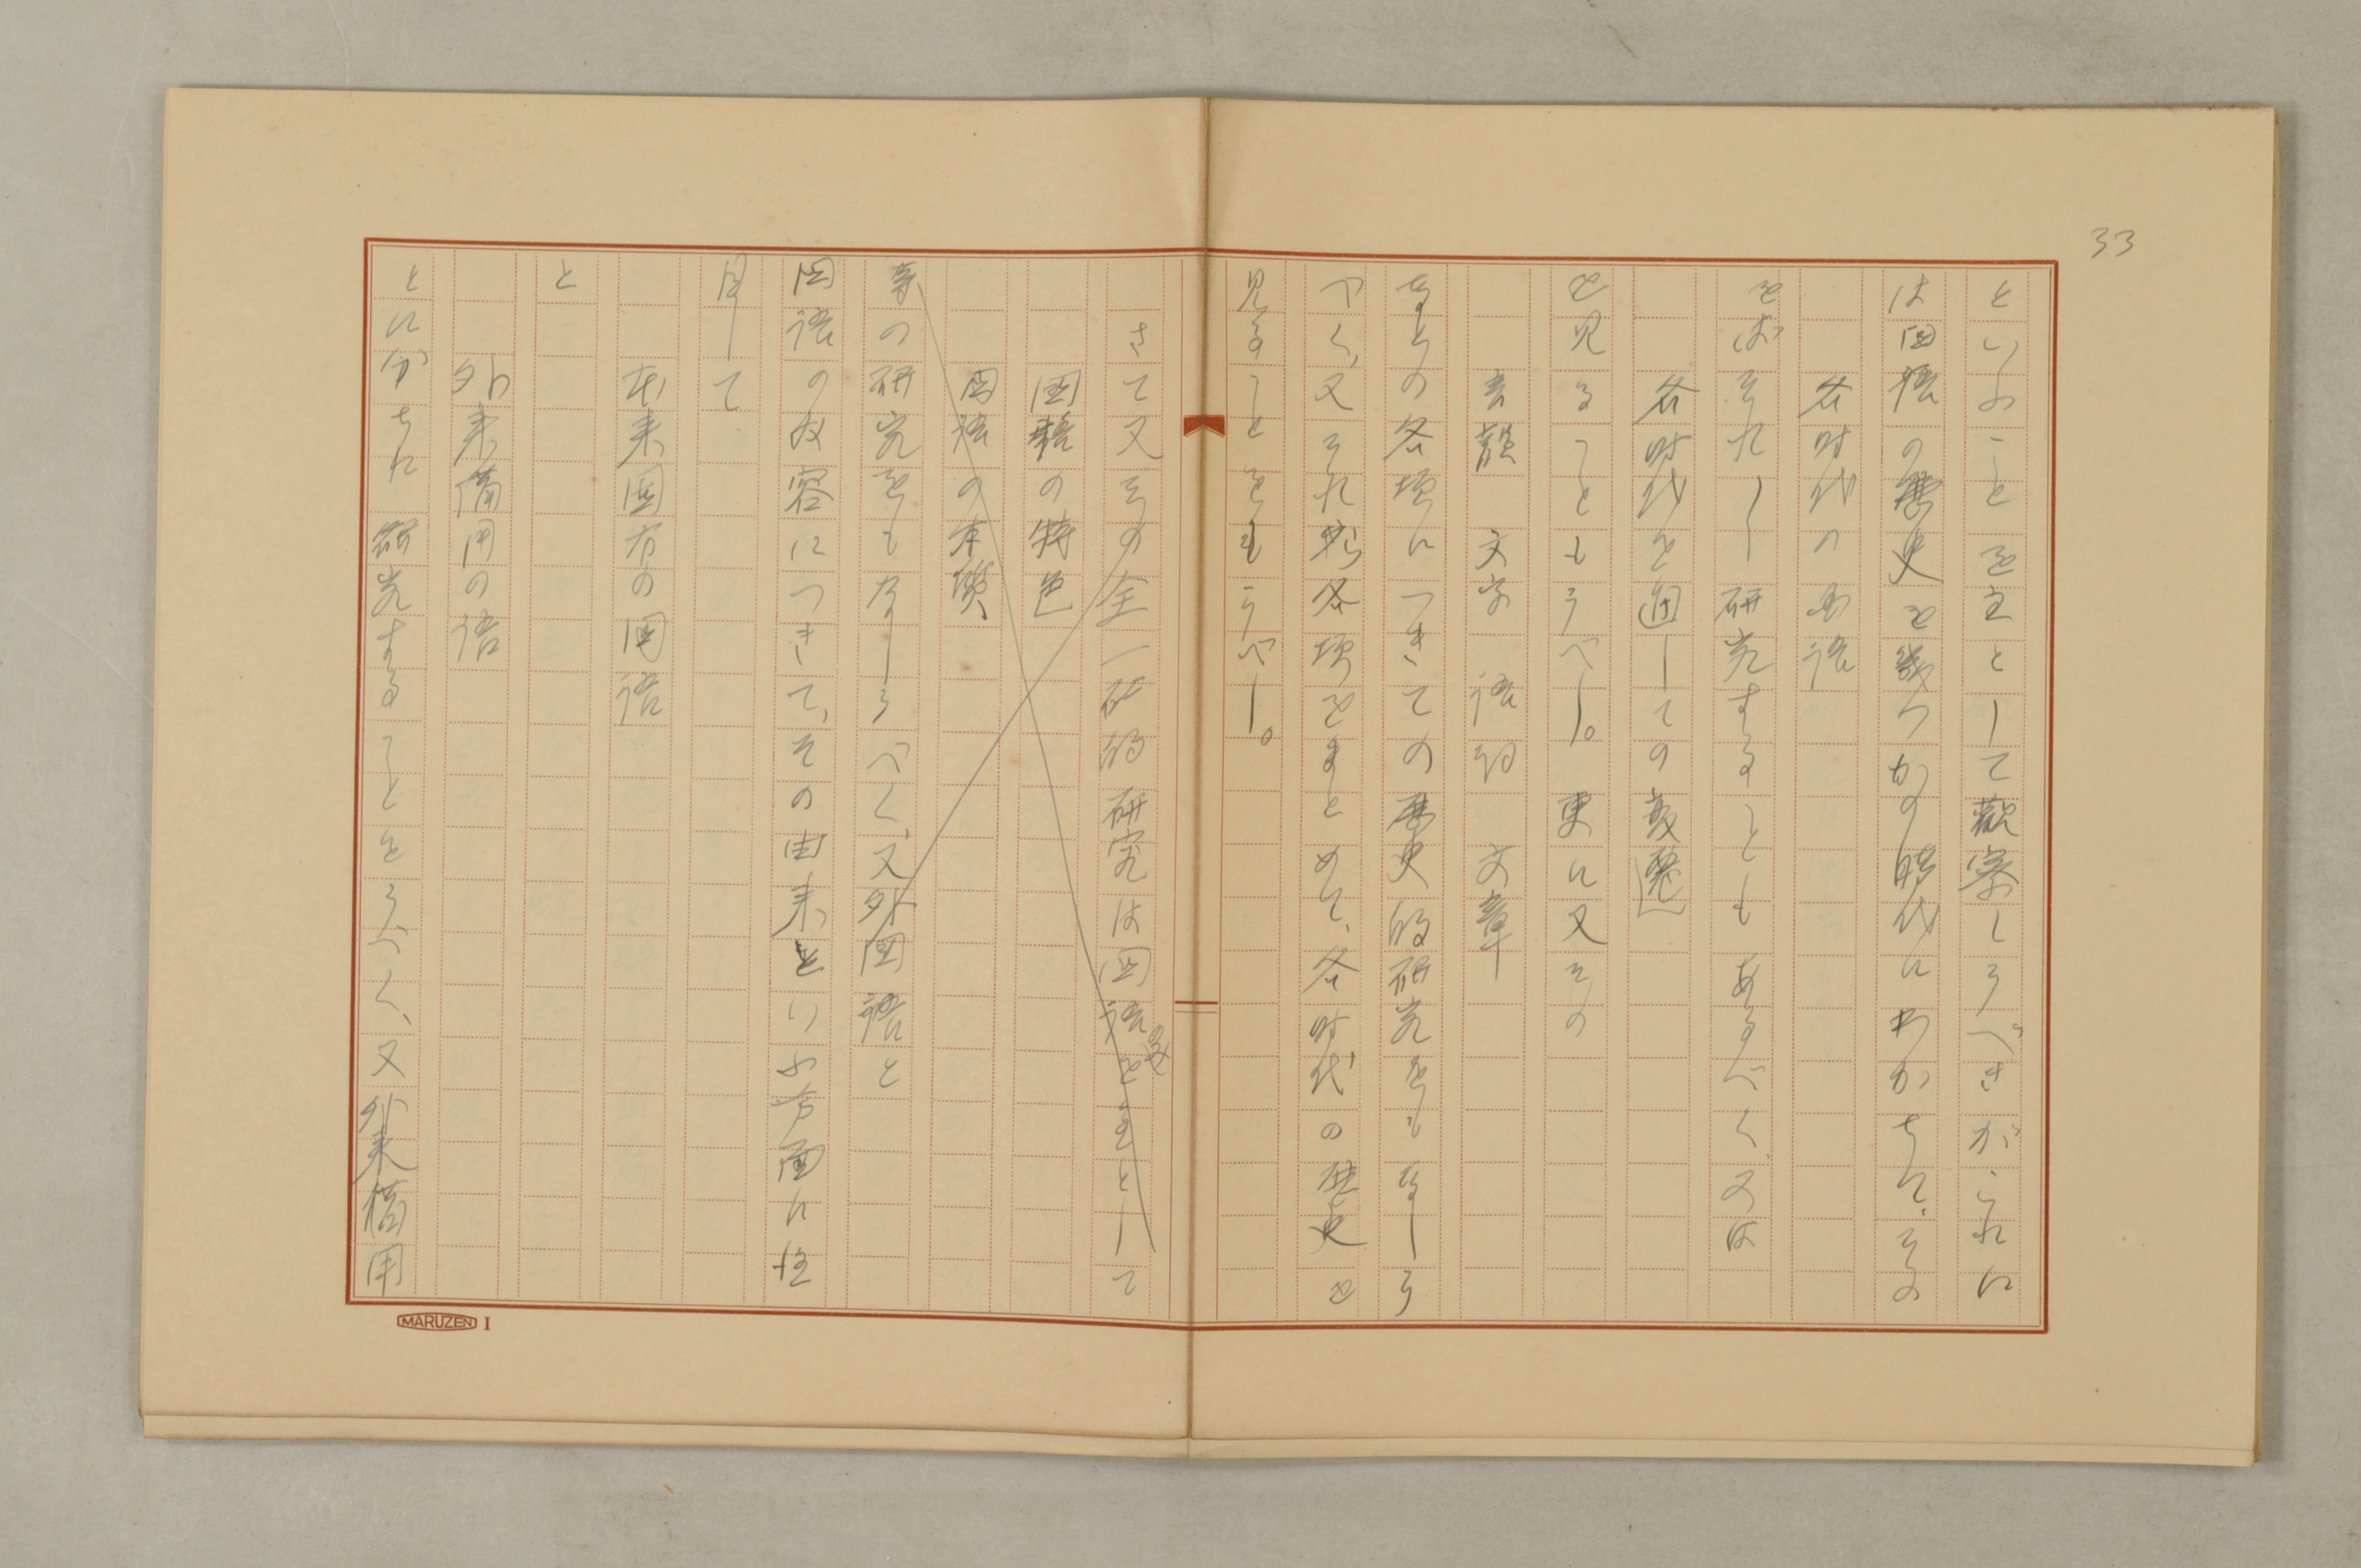 33
といふことを主として觀察しうべきが、これに
は国語の歴史を幾つかの時代にわかちて、その
各時代の国語
をばそれ〳〵研究することもあるべく、又は
各時代を通しての変遷
を見ることもうべし。更に又その
音韻 文字 語詞 文章
などの各項につきての歴史的研究をもなしう
べく、又それら各項をまとめて、各時代の歴史を
見ることをもうべし。
さて又その全一的研究は国語を主として
国語の特色
国語の本質
等の研究をもなしうべく、又外国語と
国語の内容につきて、その由来といふ方面に注
目して
本来固有の国語
と
外来借用の語
とに分ちれ研究することをうべく、又外来借用
MARUZEN I